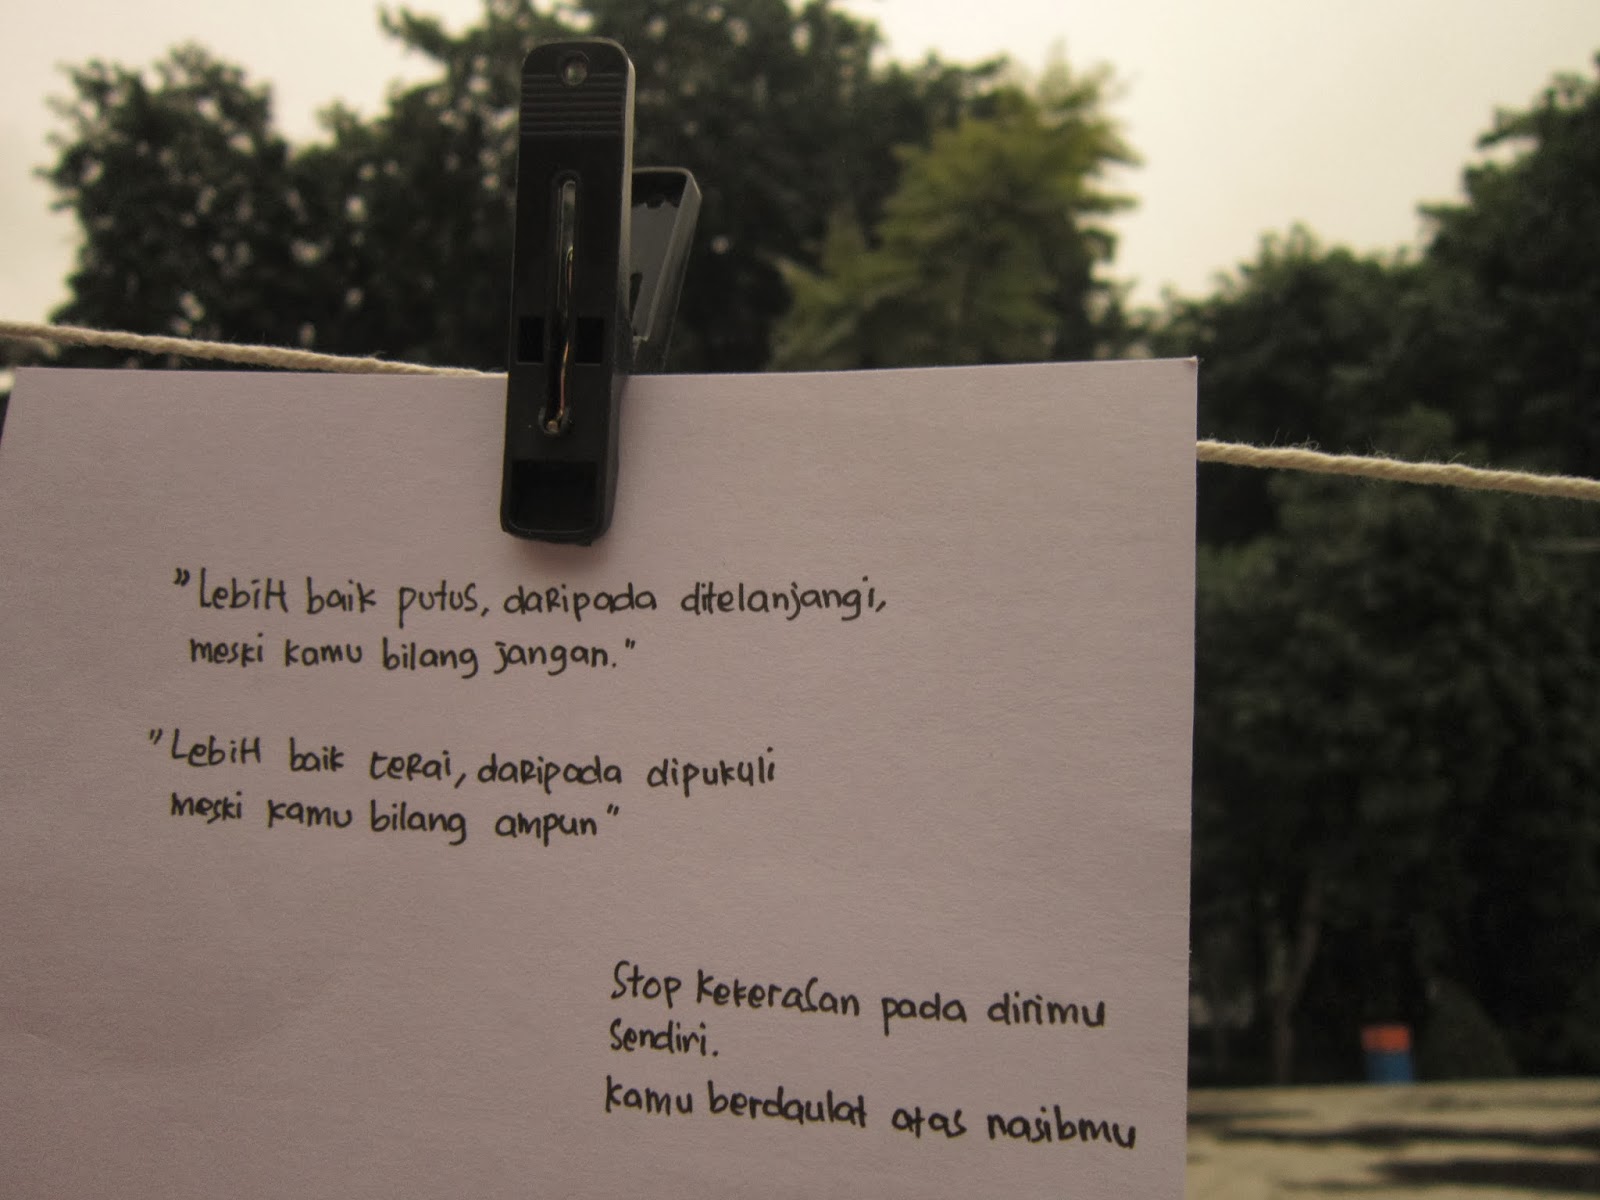 "Lebih baik putus, daripada ditelanjangi,
meski kamu bilang jangan."
"Lebih baik cerai, daripada dipukuli
meski kamu bilang ampun"
Stop kekerasan pada dirimu
sendiri.
kamu berdaulat atas nasibmu